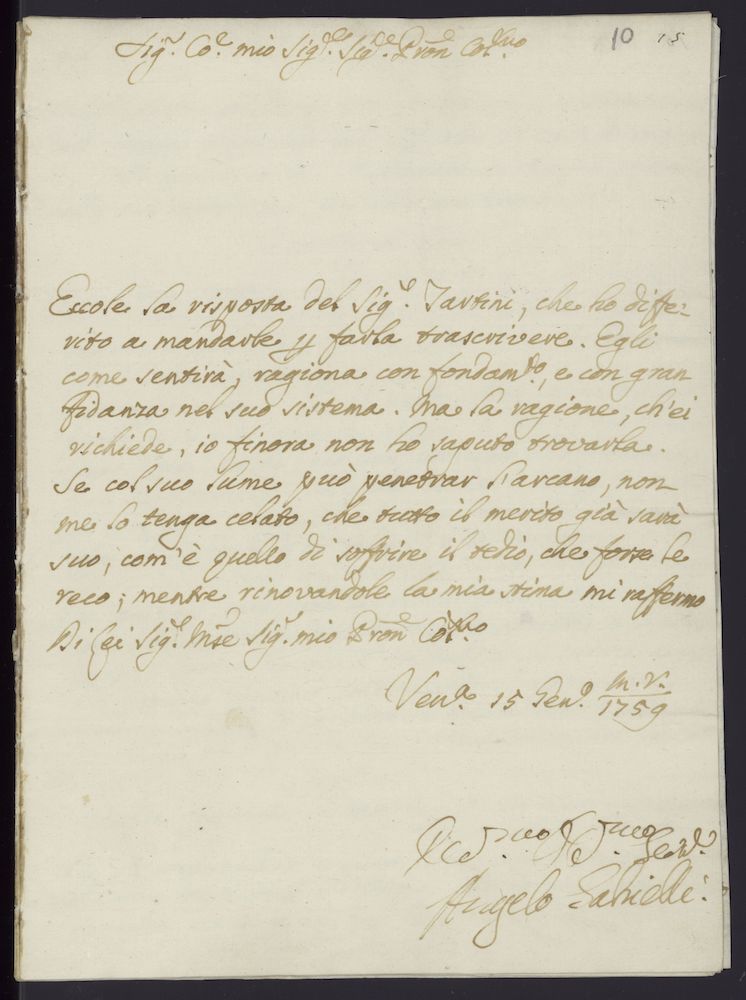 10 15
Sig.r Co.e mio Sig.r Sig.e Pron Col.mo
Eccole la risposta del Sig.r Tartini, che ho diffe=
rito a mandarle p farla trascrivere. Egli
come sentirà, ragiona con fondam.to, e con gran
fidanza nel suo sistema. Ma la ragione, ch'ei
richiede, io finora non ho saputo trovarla.
Se col suo lume può penetrar l'arcano, non
me lo tenga celato, che tutto il merito già sarà
suo, com'è quello di soffrire il tedio, che forse le
reco; mentre rinovandole la mia stima mi raffermo
Di Lei Sig.r Mse Sig.r mio Pron Col.mo
Ven.a 15 Gen.o M.V.
1759
Serv.
Angelo Gabrielli